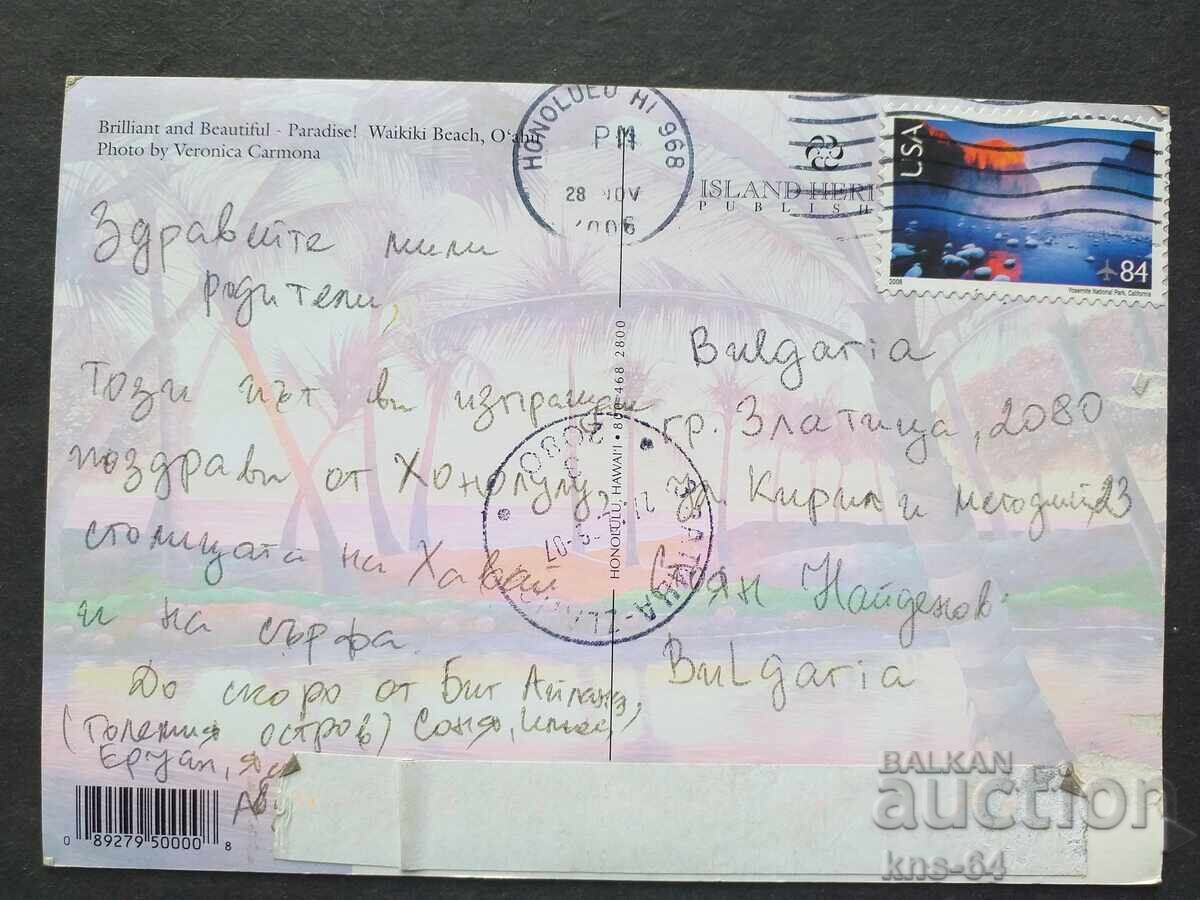 Brilliant and Beautiful - Paradise! Waikiki Beach, O'ahu
Photo by Veronica Carmona
HONOLULU HI 968
PM
28 NOV
2006
ISLAND HERI
PUBLISH
USA
84
2006
Yosemite National Park, California
Здравейте мили
родители,
Този път ви изпращаме
поздрави от Хонолулу
столицата на Хавай
и на сърфа.
До скоро от Биг Айланд,
(Големия остров) Соня,
Bulgaria
гр. Златица, 2080
ул Кирил и Методий 23
Стоян Найденов
Bulgaria
HONOLULU, HAWAI'I • 800 468 2800
2080
ЗЛАТИЦА-ZLA
0 89279 50000 8
BALKAN
auction
kns-64